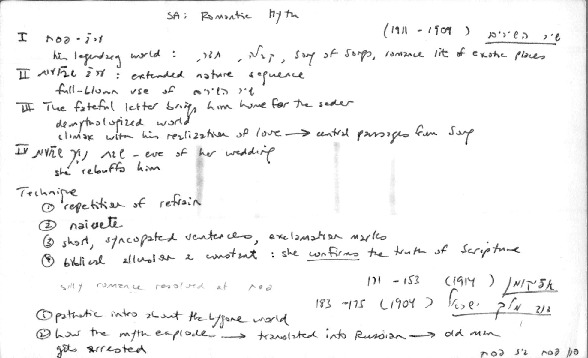 SA: Romantic Myth
(1911 - 1909) שיר השירים
I פסח - 
his legendary world : , , , Song of Songs, romance lit of exotic places
II : extended nature sequence
full-blown use of שיר השירים
III The fateful letter brings him home for the seder
demythologized world
climax with his realization of love → central passages from Song
IV - eve of her wedding
she rebuffs him
Technique
① repetition of refrain
② naivete
③ short, syncopated sentences, exclamation marks
④ biblical allusion a constant : she confirms the truth of Scripture
silly romance resolved at פסח
171 - 153 (1914)
183 - 175 (1909)
① pathetic intro about the bygone world
② how the myth explodes → translated into Russian → old man
gets arrested